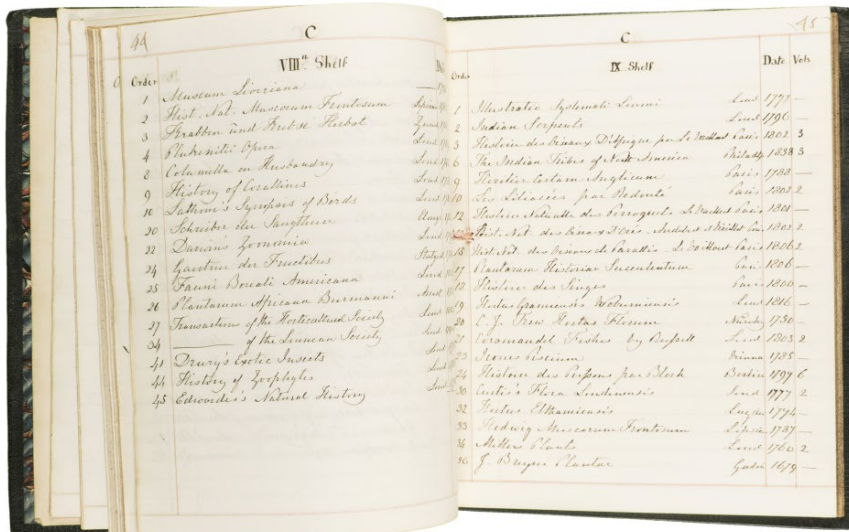 44
C
VIIIth Shelf
Order
1 Museum Leveriana
2 Hist. Nat. Muscorum Frondosum
3 Krabben und Krebse Herbst
4 Plukenitii Opera
8 Columella on Husbandry
9 History of Corallines
10 Latham's Synopsis of Birds
20 Schreber der Saugthiere
22 Darwins Zoonomia
24 Gaertner de Fructibus
25 Fauni Boreali Americana
26 Plantarum Africana Burmanni
27 Transactions of the Horticultural Society
34 ——— of the Linnean Society
41 Drury's Exotic Insects
44 History of Zoophytes
45 Edwardes's Natural History
45
C
IX Shelf
Order Date Vols
1 Illustratio Systematis Linnei Lond 1777 —
2 Indian Serpents Lond 1796 —
3 Histoire des Oiseaux D'Afrique par Le Vaillant Paris 1802 3
6 The Indian Tribes of North America Philadp 1838 3
9 Heritier Sertum Anglicum Paris 1788 —
10 Les Liliacées par Redouté Paris 1802 2
12 Histoire Naturelle des Perroquets Le Vaillant Paris 1801 —
Hist. Nat. des Oiseaux D'Orés Audebert et Vieillot Par 1802 2
15 Hist. Nat. des Oiseaux de Paradis Le Vaillant Paris 1806 2
17 Plantarum Historia Succulentarum Paris 1806 —
18 Histoire des Singes Paris 1800 —
19 Hortus Gramineus Woburnensis Lond 1816 —
20 C. J. Trew Hortus Florum Nürnbg 1750 —
21 Coromandel Fishes by Russell Lond 1803 2
23 Icones Piscium Vienna 1785 —
24 Histoire des Poissons par Bloch Berlin 1797 6
30 Curtis's Flora Londinensis Lond 1777 2
32 Hortus Elthamiensis Lugdn 1774 —
33 Hedwig Muscorum Frondosum Lipsia 1787 —
34 Millers Plants Lond 1760 2
36 J. Breyni Plantae Gedan 1679 —